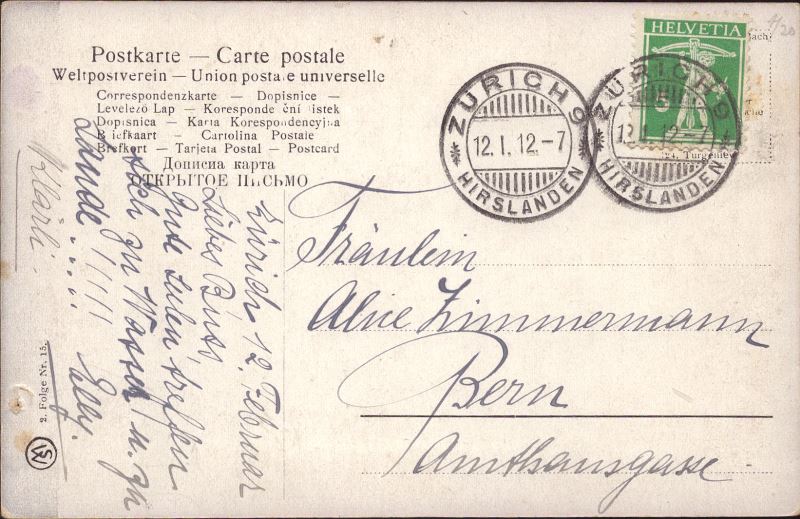 Postkarte — Carte postale
Weltpostverein — Union postale universelle
Correspondenzkarte — Dopisnice —
Levelező Lap — Korespondenční lístek
Dopisnica — Karta Korespondencyjna
Briefkaart — Cartolina Postale
Brefkort — Tarjeta Postal — Postcard
Дописна карта
ОТКРЫТОЕ ПИСЬМО
HELVETIA
5
ZÜRICH 9
12. I. 12.–7
HIRSLANDEN
ZÜRICH 9
12. I. 12.–7
HIRSLANDEN
24. Turgeniew
Fräulein
Alice Zimmermann
Bern
Amthausgasse
Zürich 12. Februar
Liebes
Gute Eulen treffen
sich zu Wasser u. zu
Lande !!!!
Elly.
Klärli.
2. Folge Nr. 15.